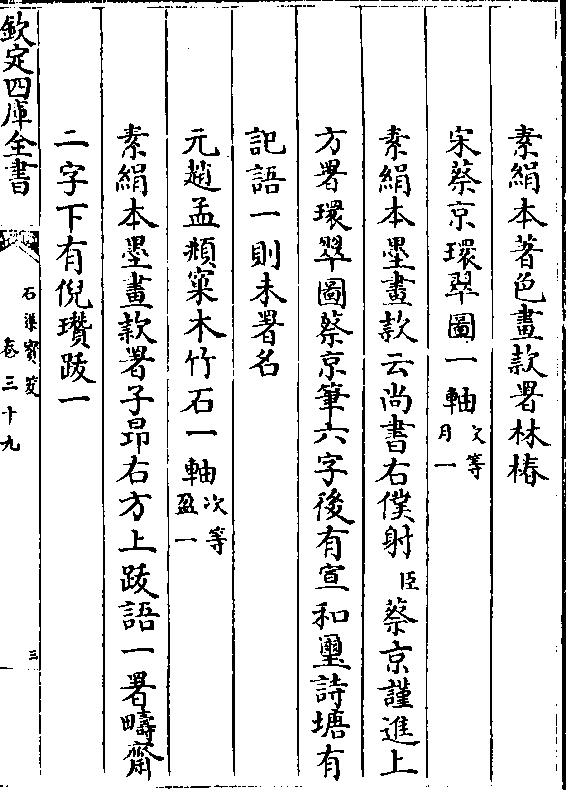 素絹本著色畫款署林椿
宋蔡京環翠圖一軸 次等 月一
素絹本墨畫款云尚書右僕射臣蔡京謹進上
方署環翠圖蔡京筆六字後有宣和璽詩塘有
記語一則未署名
元趙孟頫窠木竹石一軸 次等 盈一
素絹本墨畫款署子昂右方上跋語一署疇齋
二字下有倪瓚跋一
欽定四庫全書
石渠寳笈
卷三十九
三